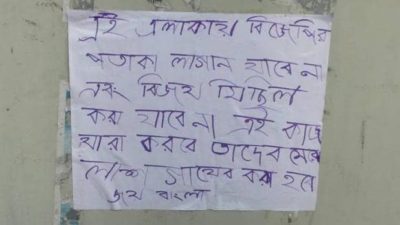 এই এলাকায় বিজেপির
পতাকা লাগান যাবে না
এবং বিজয় মিছিল
করা যাবে না এই কাজ
যারা করবে তাদের
লাশ গায়েব করা হবে
জয় বাংলা